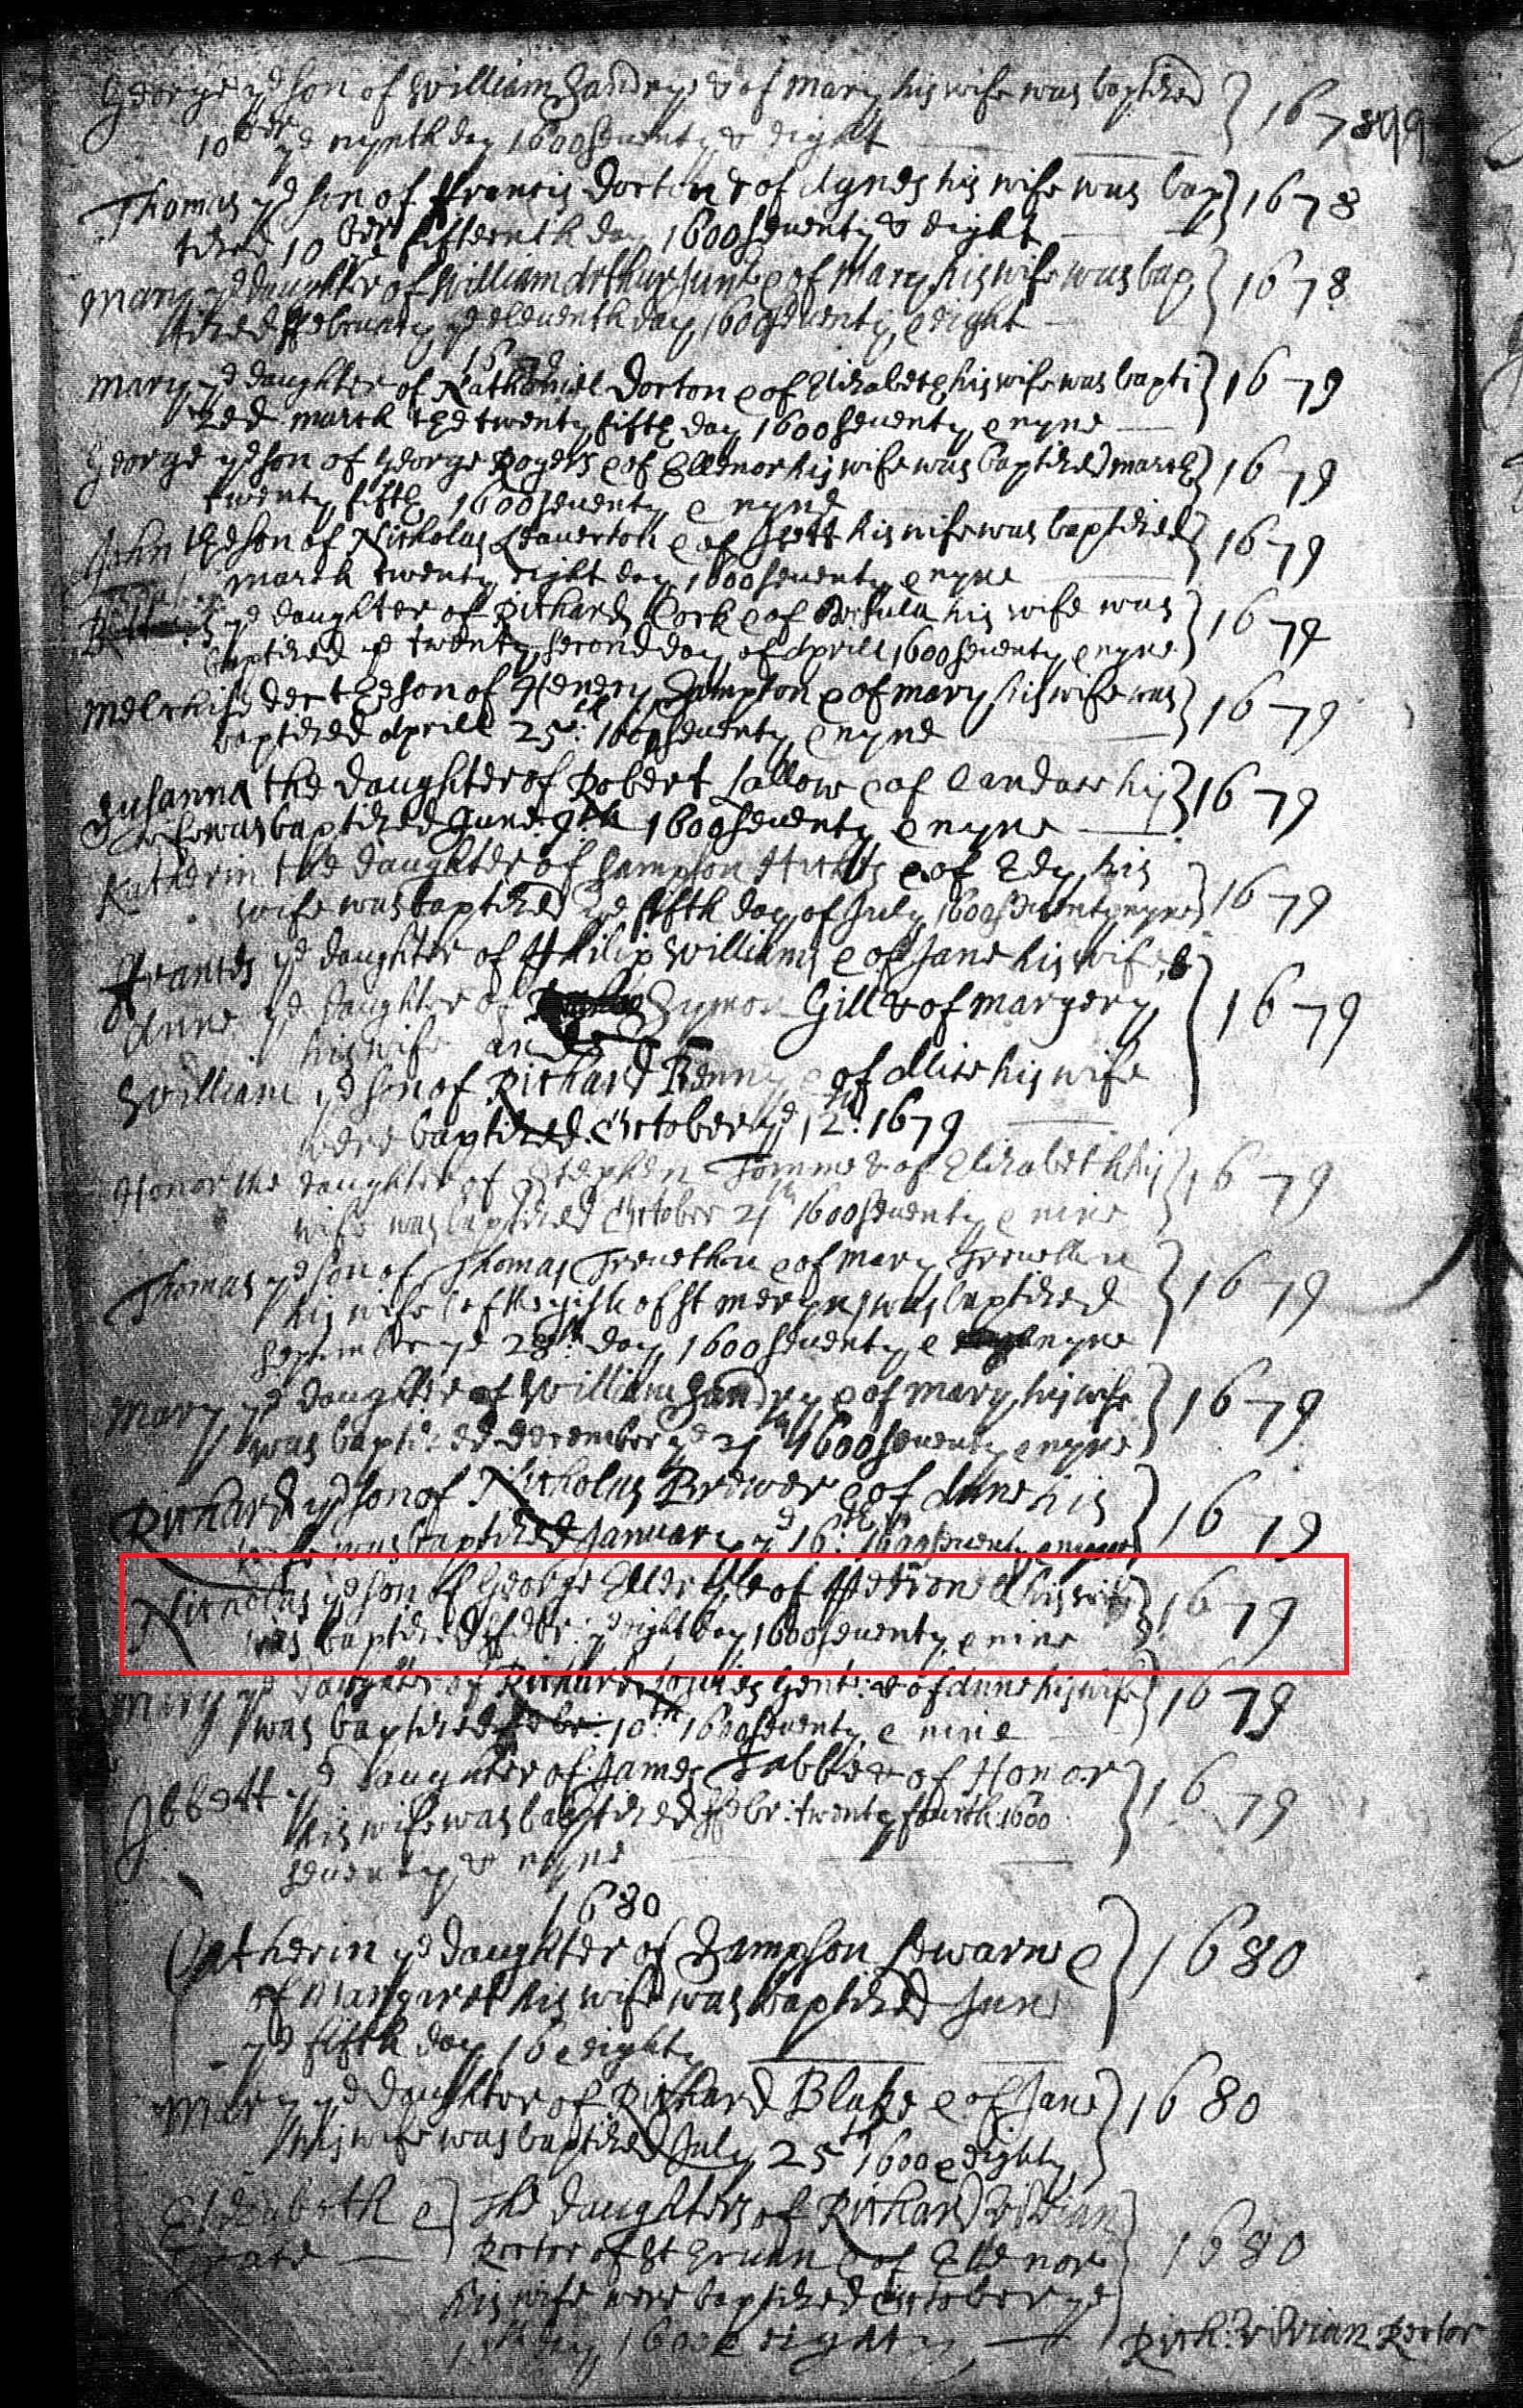 George ye son of William Sandrys & of Mary his wife was baptized } 1678
10ber ye nynth day 1600 seventy & eight
Thomas ye son of Francis Dorton & of Agnes his wife was bap } 1678
tized 10ber ye fifteenth day 1600 seventy & eight
Mary ye daughter of William Arthur Junr & of Mary his wife was bap } 1678
tized February ye eleventh day 1600 seventy & eight
1679
Mary ye daughter of Nathaniel Dorton & of Elizabeth his wife was bapti } 1679
zed march the twenty fifth day 1600 seventy & nyne
George ye son of George Rogers & of Ellenor his wife was baptized march } 1679
twenty fifth 1600 seventy & nyne
John the son of Nicholas Leauerton & of his wife was baptized } 1679
march twenty eight day 1600 seventy & nyne
ye daughter of Richard Cork & of Ursula his wife was } 1679
baptized ye twenty second day of Aprill 1600 seventy & nyne
Melchisedec the son of Henery Sampson & of mary his wife was } 1679
baptized Aprill 25th: 1600 seventy & nyne
Susanna the daughter of Robert Jallow & of Candace his } 1679
wife was baptized June: 9th 1600 seventy & nyne
Katherin the daughter of Sampson Hicks & of Edy his } 1679
wife was baptized ye fifth day of July 1600 seventy nyne
Frances ye daughter of Philip Williams & of Jane his wife & } 1679
Anne ye daughter of Symon Gill & of margery
his wife and
William ye son of Richard Benny & of Alice his wife
were baptized October ye 12th: 1679
Honor the daughter of Stephen Tomme & of Elizabeth his } 1679
wife was baptized October 21th 1600 seventy & nine
Thomas ye son of Thomas Trenethen & of mary Trenethen } 1679
his wife of St meryn was baptized
September ye 28th: day 1600 seventy & nyne
Mary ye daughter of William Sandrys & of mary his wife } 1679
was baptized december ye 21th 1600 seventy & nyne
Richard ye son of Nicholas Brewer & of Anne his } 1679
wife was baptized January ye 16th: 1600 seventy & nyne
Nicholas ye son of George Ellery & of Petronell his wife } 1679
was baptized febr: ye eight day 1600 seventy & nine
Mary ye daughter of Richard Gent: & of Anne his wife } 1679
was baptized febr: 10th: 1600 seventy & nine
Jbbett ye daughter of James Tabb & of Honor } 1679
his wife was baptized Febr: twenty fourth 1600
seventy & nyne
1680
Catherin ye daughter of Sampson Lewarne & } 1680
of Margaret his wife was baptized June
ye fifth day 16 eighty
Mary ye daughter of Richard Blake & of Jane } 1680
his wife was baptized July 25th 1600 & eighty
Elizabeth & } The daughters of Richard Vivian } 1680
Grace — Rector of St Ervan & of Elenor
his wife were baptized October ye
day 1600 & eighty
Rich: Vivian Rector